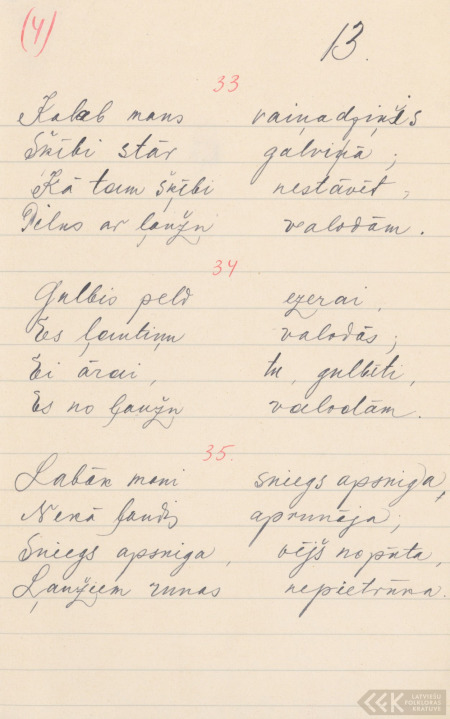 (4)
13.
33
Kalab mans vaiņadziņš
Šķībi stār galviņā;
Kā tam šķībi nestāvēt,
Pilns ar ļaužu valodām.
34
Gulbis peld ezerai,
Es ļautiņu valodās;
Ei ārai, tu, gulbīti,
Es no ļaužu valodām.
35.
Labāk mani sniegs apsniga,
Nekā ļaudis aprunāja;
Sniegs apsniga, vējš nopūta,
Ļaužiem runas nepietrūka.
LATVIEŠU
FOLKLORAS
KRĀTUVE